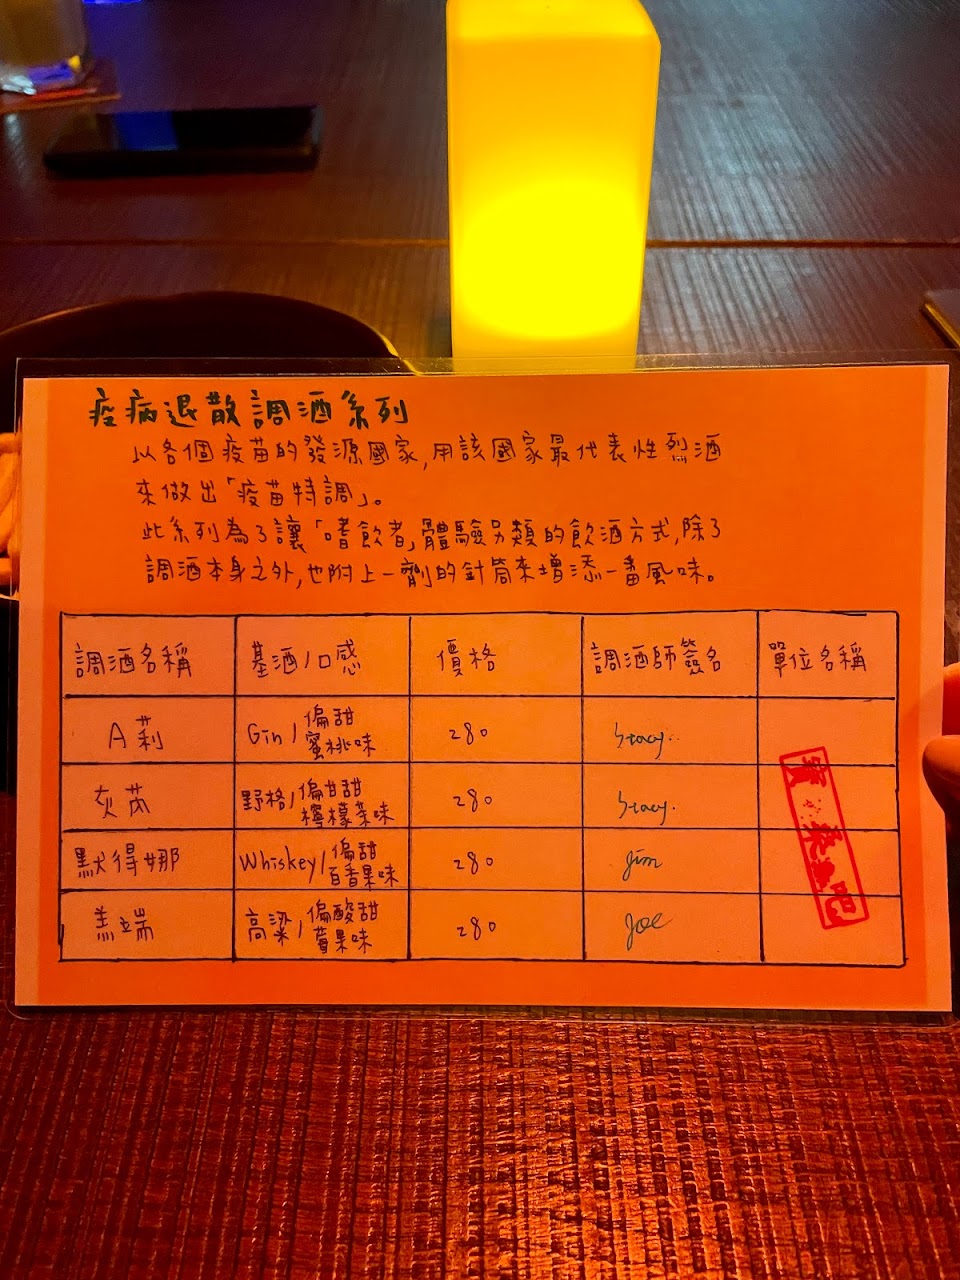 疫病退散調酒系列
以各個疫苗的發源國家,用該國家最代表性烈酒
來做出「疫苗特調」。
此系列為了讓「嗜飲者」體驗另類的飲酒方式,除了
調酒本身之外,也附上一劑的針筒來增添一番風味。
調酒名稱 基酒/口感 價格 調酒師簽名 單位名稱
A莉 Gin/偏甜 蜜桃味 280 Stacy
灰芮 野格/偏甘甜 檸檬茶味 280 Stacy
默得娜 Whiskey/偏甜 百香果味 280 Jim
羔端 高粱/偏酸甜 莓果味 280 Joe
吧